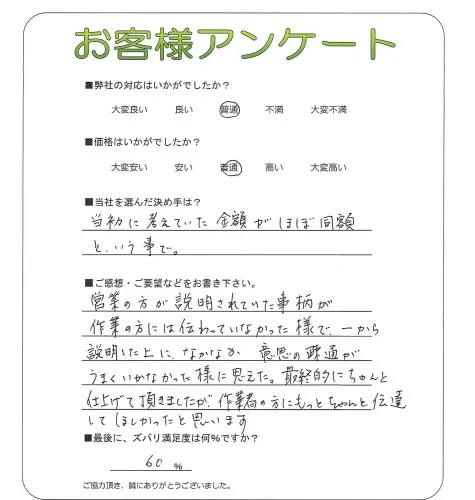 お客様アンケート
■弊社の対応はいかがでしたか?
大変良い 良い 普通 不満 大変不満
■価格はいかがでしたか?
大変安い 安い 普通 高い 大変高い
■当社を選んだ決め手は?
当初に考えていた金額がほぼ同額
という事で。
■ご感想・ご要望などをお書き下さい。
営業の方が説明されていた事柄が
作業の方には伝わっていなかった様で、一から
説明した上に、なかなか意思の疎通が
うまくいかなかった様に思えた。最終的にちゃんと
仕上げて頂きましたが、作業者の方にもっとちゃんと伝達
してほしかったと思います
■最後に、ズバリ満足度は何%ですか?
60 %
ご協力頂き、誠にありがとうございました。